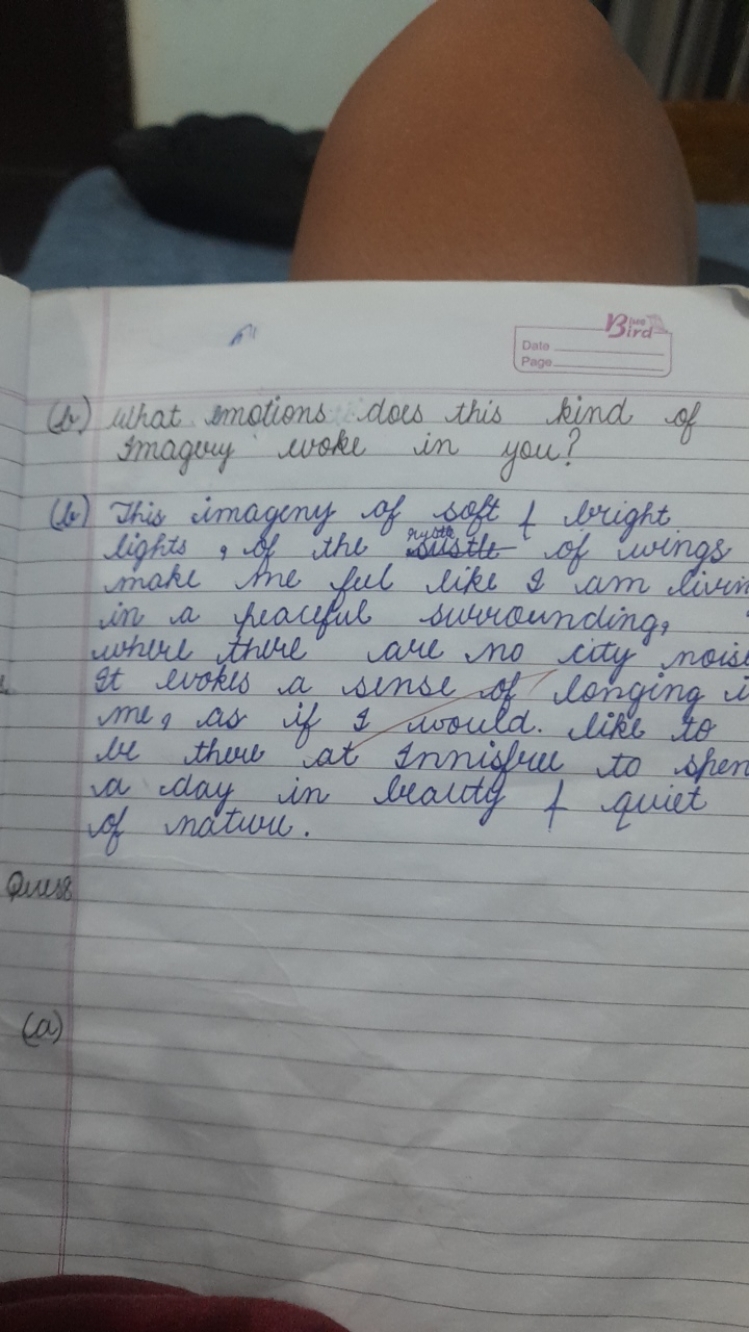 Blue Bird
Date
Page
(b) What emotions does this kind of
Imagery evoke in you?
(b) This imagery of soft & bright
lights, of the rustle of wings
make me feel like I am livin
in a peaceful surrounding,
where there are no city noise
It evokes a sense of longing i
me, as if I would. like to
be there at Innisfree to spen
a day in beauty & quiet
of nature.
Ques8
(a)